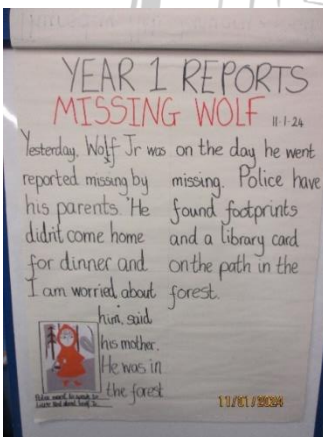 YEAR 1 REPORTS
MISSING WOLF 11-1-24
Yesterday, Wolf Jr was
reported missing by
his parents. "He
didn't come home
for dinner and
I am worried about
him, said
his mother.
He was in
the forest
on the day he went
missing. Police have
found footprints
and a library card
on the path in the
forest.
Police want to speak to
11/01/2024